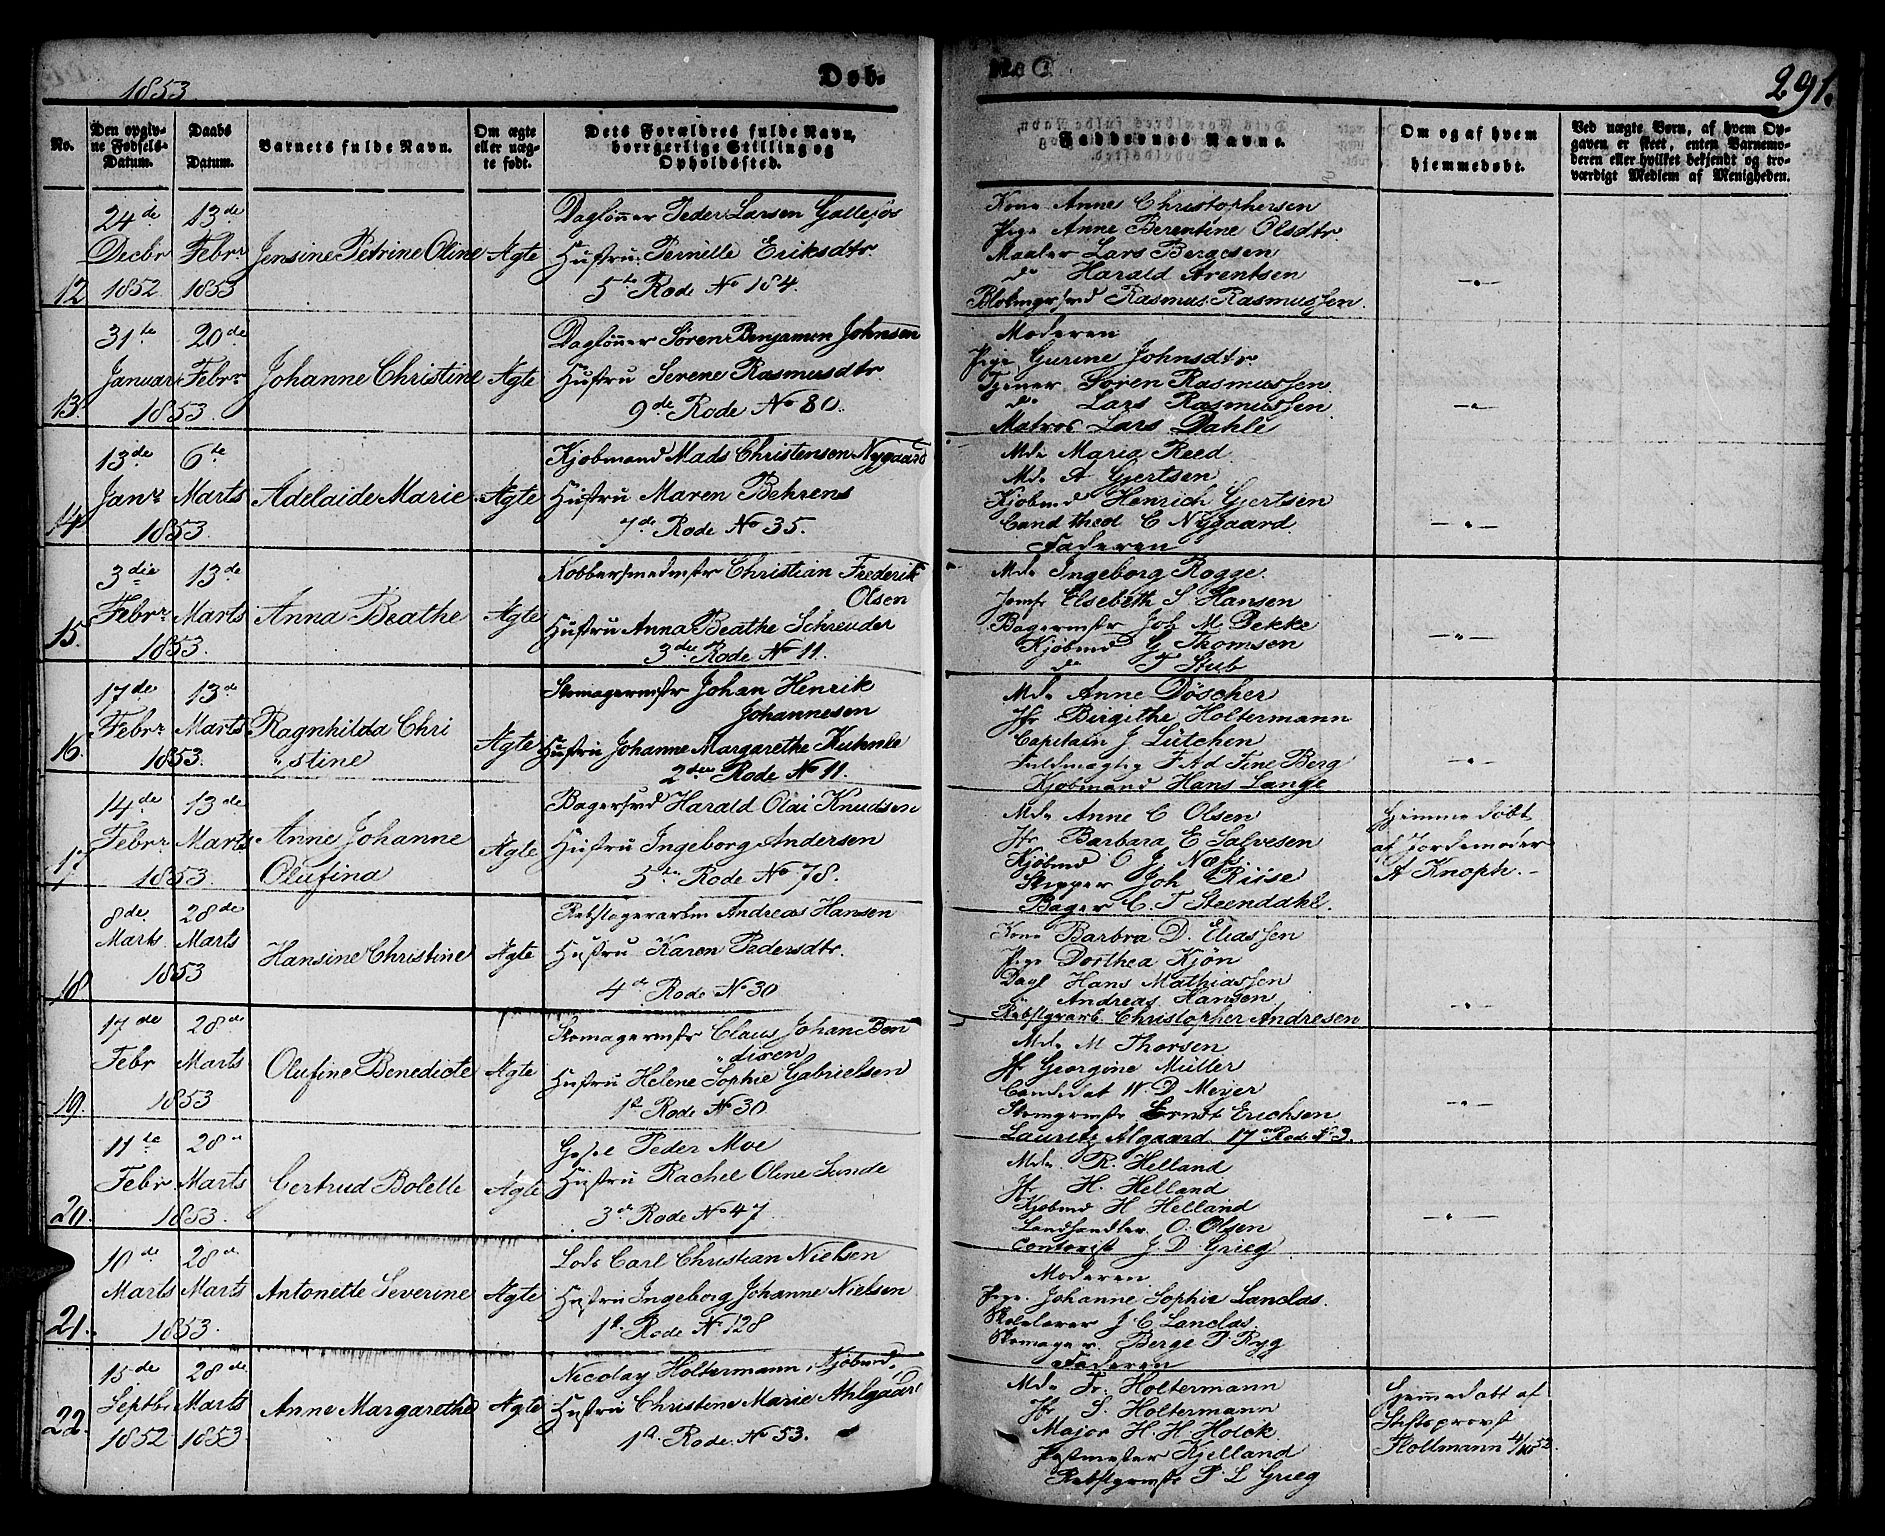 1853
Døb-
te
291.
No.
Den opgiv-
ne Fødsels-
Datum.
Daabs
Datum.
Barnets fulde Navn.
Om ægte
eller uæg-
te født.
Dets Forældres fulde Navn,
borgerlige Stilling og
Opholdssted.
Faddernes Navne.
Om og af hvem
hjemmedøbt.
Ved uægte Børn, af hvem Op-
gaven er skeet, enten Barnemo-
deren eller hvilket bekjendt og tro-
værdigt Medlem af Menigheden.
12
24de Decbr 1852
13de Febrr 1853
Jensine Petrine Oline
Ægte
Dagløner Peder Larsen Gallesjøs
Hustru Pernille Eriksdtr.
5te Rode No 184.
Kone Anne Christophersen
Pige Anne Berentine Olsdtr.
Maaler Lars Bergesen
do Harald Arentsen
Rasmus Rasmussen.
13.
31te Januar
20de Febrr
1853.
Johanne Christine
Ægte
Dagløner Søren Benjamen Johnsen
Hustru Serene Rasmusdtr.
9de Rode No 80.
Moderen
Pige Gurine Johnsdtr.
Tjener Soren Rasmussen
do Lars Rasmussen
Matros Lars Dahle
14
13de Janr
6te Marts
1853.
Adelaide Marie
Ægte
Kjøbmand Mads Christensen Nygaard
Hustru Maren Behrens
7de Rode No 35.
Md. Maria Reed
Md. A Gjertsen
Kjøbmd Henrich Gjertsen
Cand theol C Nygaard
Faderen
15.
3die Febrr
13de Marts
1853.
Anna Beathe
Ægte
Kobbersmedmstr Christian Frederik
Olsen
Hustru Anna Beathe Schreuder
3die Rode No 11.
Md. Ingeborg Rogge.
Jomfr Elsebeth S Hansen
Bagermstr Joh M Pekke
Kjøbmd G Thomsen
do T Stub
16.
17de Febrr
13de Marts
1853.
Ragnhilda Chri
stine
Ægte
Skomagermstr Johan Henrik
Johannesen
Hustru Johanne Margarethe Kuhnle
2den Rode No 11.
Md. Anne Döscher
Jfr Birgithe Holtermann
Capitain J Lütchen
Fuldmægtig F Ad Fine Berg
Kjøbmand Hans Lange
17
14de Febrr
13de Marts
1853.
Anne Johanne
Olufina
Ægte
Bagersvd Harald Olai Knudsen
Hustru Ingeborg Andersen
5te Rode No 78.
Md. Anne C Olsen
Jfr Barbara E Salvesen
Kjøbmd O J Næss
Skipper Joh Riise
Bager C. T Steendahl.
Hjemmedøbt
af Jordemoder
A Knoph.
18
8de Marts
28de Marts
1853
Hansine Christine
Ægte
Rebslagerarbm Andreas Hansen
Hustru Karen Pedersdtr.
4de Rode No 30
Kone Barbra D. Eliassen
Pige Dorthea Kjøn
Dagl Hans Mathiassen
Andreas Hansen
Rebslgrarb. Christopher Andresen
19.
17de Febr
28de Marts
1853
Olufine Benedicte
Ægte
Skomagermstr Claus Johan Ben
dixen
Hustru Helene Sophie Gabrielsen
1st Rode No 30
Md. M Thorsen
Jfr Georgine Müller
Candidat W. D Meyer
Skomgrmstr Ernst Erichsen
Lauritz Algaard 17 Rode No 3.
20.
11te Febr
28 Marts
1853.
Gertrud Bolette
Ægte
Peder Moe
Hustru Rachel Oline Sunde
3de Rode No 47
Md. R. Helland
Jfr H. Helland
Kjøbmd H Helland
Landhandler O. Olsen
Contorist J D Grieg
21.
10de Marts
28de Marts
1853.
Antonette Severine
Ægte
Lods Carl Christian Nielsen
Hustru Ingeborg Johanne Nielsen
1st Rode No 128
Moderen
Pige Johanne Sophie Landas.
Skolelærer J C Landas.
Skomager Berge P. Ryg
Faderen
22.
15de Septbr 1852
28de Marts 1853
Anne Margarethe
Ægte
Nicolay Holtermann, Kjøbmd,
Hustru Christine Marie Ahlgaard
1st. Rode. No 53.
Md. Fr. Holtermann
Jfr S. Holtermann
Major H. H Holck
Postmester Kjelland
Rebslgrmstr P. L Grieg
Hjemmedøbt af
Stiftsprovst
Flottmann 4/10 52.